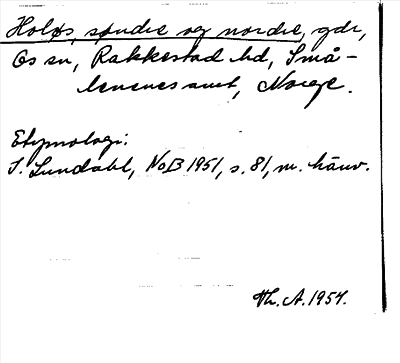 Holøs, søndre og nordre, gde,
Os sn, Rakkestad hd, Små-
lenenes amt, Norge.
Etymologi:
I. Lundahl, NoB 1951, s. 81, m. hänv.
Th. A. 1954.